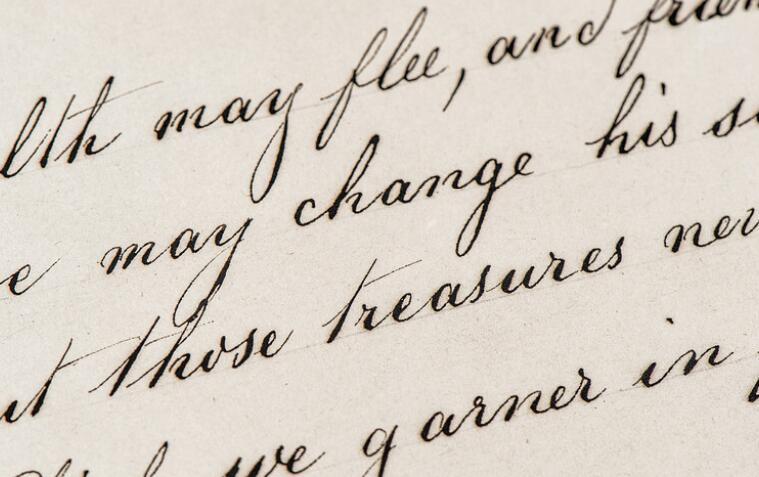 lth may flee, and frien
e may change his s
ut those treasures nev
we garner in